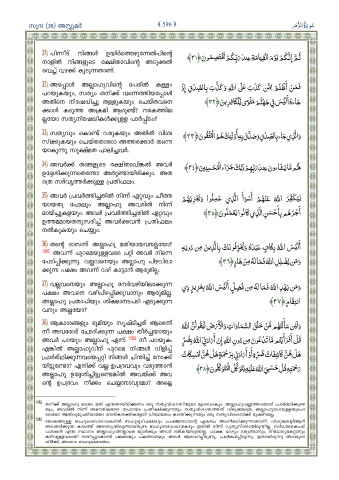 സൂറ (39) അസ്സുമർ
(596)
سُورَةُ الزُّمَر
31) പിന്നീട് നിങ്ങൾ ഉയർത്തെഴുന്നേൽപിന്റെ
നാളിൽ നിങ്ങളുടെ രക്ഷിതാവിന്റെ അടുക്കൽ
വെച്ച് വഴക്ക് കൂടുന്നതാണ്.
ثُمَّ إِنَّكُمْ يَوْمَ الْقِيَامَةِ عِندَ رَبِّكُمْ تَخْتَصِمُونَ ﴿٣١﴾
32) അപ്പോൾ അല്ലാഹുവിന്റെ പേരിൽ കള്ളം
പറയുകയും, സത്യം തനിക്ക് വന്നെത്തിയപ്പോൾ
അതിനെ നിഷേധിച്ചു തള്ളുകയും ചെയ്തവനെ
ക്കാൾ കടുത്ത അക്രമി ആരുണ്ട്? നരകത്തില
ല്ലയോ സത്യനിഷേധികൾക്കുള്ള പാർപ്പിടം?
فَمَنْ أَظْلَمُ مِمَّن كَذَبَ عَلَى اللَّهِ وَكَذَّبَ بِالصِّدْقِ إِذْ
جَاءَهُ أَلَيْسَ فِي جَهَنَّمَ مَثْوًى لِّلْكَافِرِينَ ﴿٣٢﴾
33) സത്യവും കൊണ്ട് വരുകയും അതിൽ വിശ്വ
സിക്കുകയും ചെയ്തതാരോ അത്തരക്കാർ തന്നെ
യാകുന്നു സൂക്ഷ്മത പാലിച്ചവർ.
وَالَّذِي جَاءَ بِالصِّدْقِ وَصَدَّقَ بِهِ أُولَٰئِكَ هُمُ الْمُتَّقُونَ ﴿٣٣﴾
34) അവർക്ക് തങ്ങളുടെ രക്ഷിതാവിങ്കൽ അവർ
ഉദ്ദേശിക്കുന്നതെന്തോ അതുണ്ടായിരിക്കും. അത
ത്രെ സദ്‌വൃത്തർക്കുള്ള പ്രതിഫലം.
لَهُم مَّا يَشَاءُونَ عِندَ رَبِّهِمْ ذَٰلِكَ جَزَاءُ الْمُحْسِنِينَ ﴿٣٤﴾
35) അവർ പ്രവർത്തിച്ചതിൽ നിന്ന് ഏറ്റവും ചീത്ത
യായതു പോലും അല്ലാഹു അവരിൽ നിന്ന്
മായ്ച്ചുകളയും. അവർ പ്രവർത്തിച്ചതിൽ ഏറ്റവും
ഉത്തമമായതനുസരിച്ച് അവർക്കവൻ പ്രതിഫലം
നൽകുകയും ചെയ്യും.
لِيُكَفِّرَ اللَّهُ عَنْهُمْ أَسْوَأَ الَّذِي عَمِلُوا وَيَجْزِيَهُمْ
أَجْرَهُم بِأَحْسَنِ الَّذِي كَانُوا يَعْمَلُونَ ﴿٣٥﴾
36) തന്റെ ദാസന് അല്ലാഹു മതിയായവനല്ലയോ?
അവന് പുറമെയുള്ളവരെ പറ്റി അവർ നിന്നെ
പേടിപ്പിക്കുന്നു. വല്ലവനെയും അല്ലാഹു പിഴവിലാ
ക്കുന്ന പക്ഷം അവന് വഴി കാട്ടാൻ ആരുമില്ല.
أَلَيْسَ اللَّهُ بِكَافٍ عَبْدَهُ وَيُخَوِّفُونَكَ بِالَّذِينَ مِن دُونِهِ
وَمَن يُضْلِلِ اللَّهُ فَمَا لَهُ مِنْ هَادٍ ﴿٣٦﴾
37) വല്ലവനെയും അല്ലാഹു നേർവഴിയിലാക്കുന്ന
പക്ഷം അവനെ വഴിപിഴപ്പിക്കുവാനും ആരുമില്ല.
അല്ലാഹു പ്രതാപിയും ശിക്ഷാനടപടി എടുക്കുന്ന
വനും അല്ലയോ?
وَمَن يَهْدِ اللَّهُ فَمَا لَهُ مِن مُّضِلٍّ أَلَيْسَ اللَّهُ بِعَزِيزٍ ذِي
انتِقَامٍ ﴿٣٧﴾
38) ആകാശങ്ങളും ഭൂമിയും സൃഷ്ടിച്ചത് ആരെന്ന്
നീ അവരോട് ചോദിക്കുന്ന പക്ഷം തീർച്ചയായും
അവർ പറയും: അല്ലാഹു എന്ന്. നീ പറയുക:
എങ്കിൽ അല്ലാഹുവിന് പുറമെ നിങ്ങൾ വിളിച്ച്
പ്രാർത്ഥിക്കുന്നവയെപ്പറ്റി നിങ്ങൾ ചിന്തിച്ച് നോക്കി
യിട്ടുണ്ടോ? എനിക്ക് വല്ല ഉപദ്രവവും വരുത്താൻ
അല്ലാഹു ഉദ്ദേശിച്ചിട്ടുണ്ടെങ്കിൽ അവയ്ക്ക് അവ
ന്റെ ഉപദ്രവം നീക്കം ചെയ്യാനാവുമോ? അല്ലെ
وَلَئِن سَأَلْتَهُم مَّنْ خَلَقَ السَّمَاوَاتِ وَالْأَرْضَ لَيَقُولُنَّ اللَّهُ
قُلْ أَفَرَأَيْتُم مَّا تَدْعُونَ مِن دُونِ اللَّهِ إِنْ أَرَادَنِيَ اللَّهُ بِضُرٍّ
هَلْ هُنَّ كَاشِفَاتُ ضُرِّهِ أَوْ أَرَادَنِي بِرَحْمَةٍ هَلْ هُنَّ مُمْسِكَاتُ
رَحْمَتِهِ قُلْ حَسْبِيَ اللَّهُ عَلَيْهِ يَتَوَكَّلُ الْمُتَوَكِّلُونَ ﴿٣٨﴾